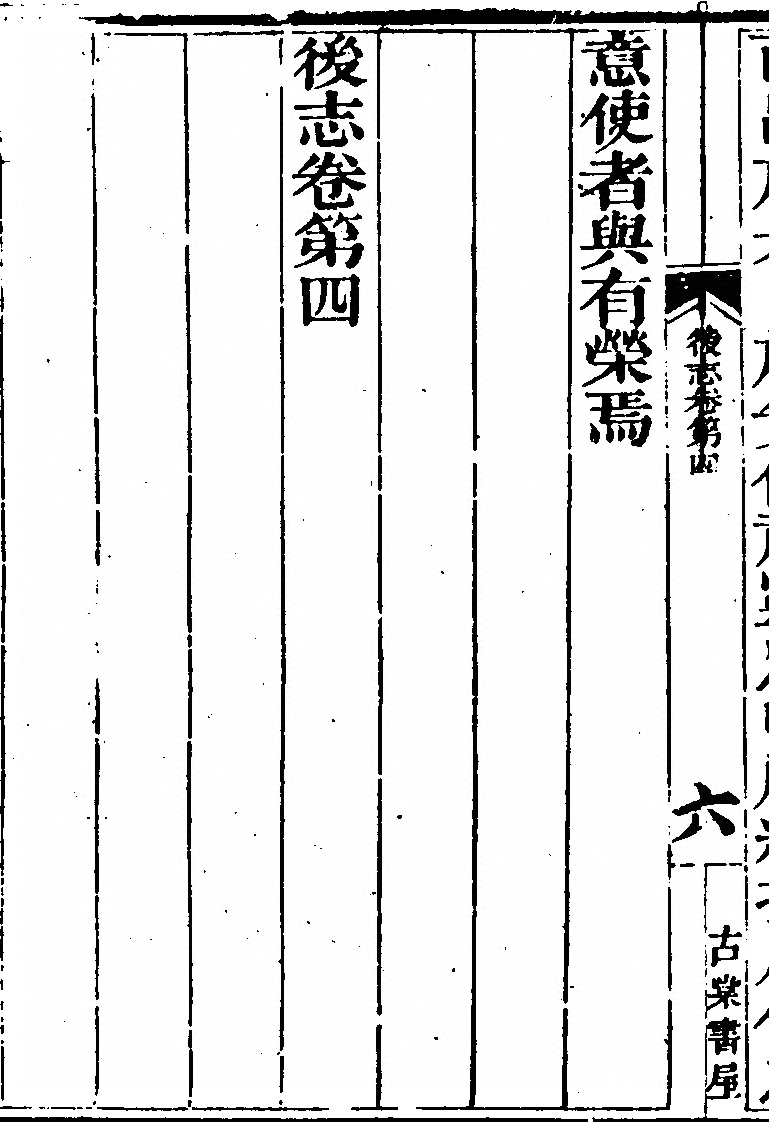 後志卷第四
六
古棠書屋
意使者與有榮焉
後志卷第四